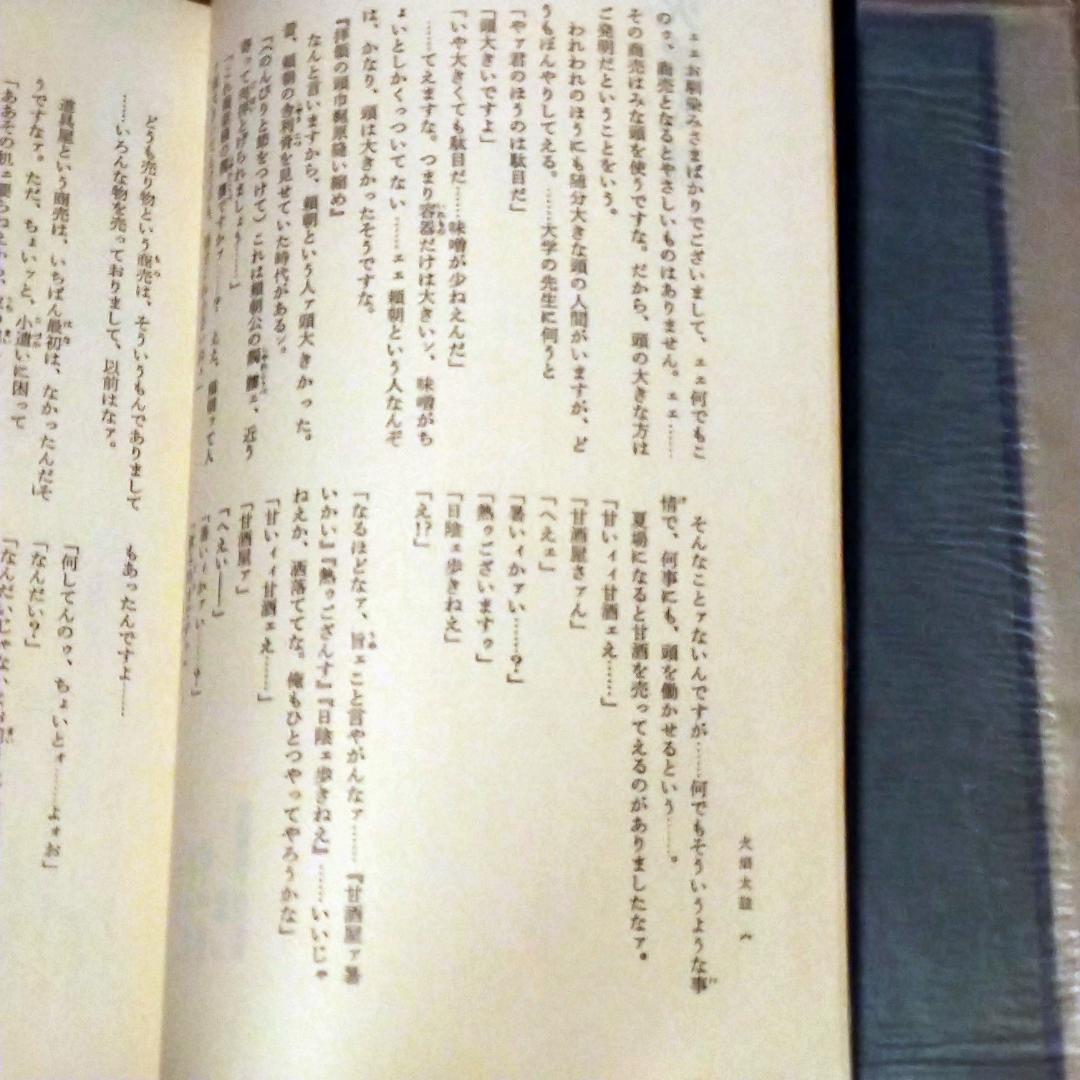 火焔太鼓 六
ェェお馴染みさまばかりでございまして、ェェ何でもこ
のゥ、商売となるとやさしいものはありません。ェェ……
その商売はみな頭を使うですな。だから、頭の大きな方は
ご発明だということをいう。
われわれのほうにも随分大きな頭の人間がいますが、ど
うもぼんやりしてえる。……大学の先生に伺うと
「やァ君のほうのは駄目だ」
「頭大きいですよ」
「いや大きくても駄目だ……味噌が少ねえんだ」
……てえますな。つまり容器だけは大きいン、味噌がち
ょいとしかくっついてない……ェェ頼朝という人なんぞ
は、かなり、頭は大きかったそうですな。
『拝領の頭巾梶原縫い縮め』
なんと言いますから、頼朝という人ァ頭大きかった。
昔、頼朝の舎利骨を見せていた時代があるン。
「(のんびりと節をつけて)これは頼朝公の髑髏ェ、近う
寄って拝遂げられましょう……」
そんなことァないんですが……何でもそういうような事
情で、何事にも、頭を働かせるという……。
夏場になると甘酒を売ってえるのがありましたなァ。
「甘いィィ甘酒ェえ……」
「甘酒屋さァん」
「へえェ」
「暑いィかァい……?」
「熱ゥございますゥ」
「日陰ェ歩きねえ」
「え!?」
「なるほどなァ、旨ェこと言やがんなァ……『甘酒屋ァ暑
いかい』『熱ゥござんす』『日陰ェ歩きねえ』……いいじゃ
ねえか、洒落ててな。俺もひとつやってやろうかな」
「甘いィィ甘酒ェえ……」
「甘酒屋ァ」
「へえい――」
「暑いィかァい……?」
どうも売り物という商売は、そういうもんでありまして
……いろんな物を売っておりまして、以前はなァ。
道具屋という商売は、いちばん最初は、なかったんだそ
うですなァ。ただ、ちょいッと、小遣いに困って
もあったんですよ……
「何してんのゥ、ちょいとォ……よォお」
「なんだい?」